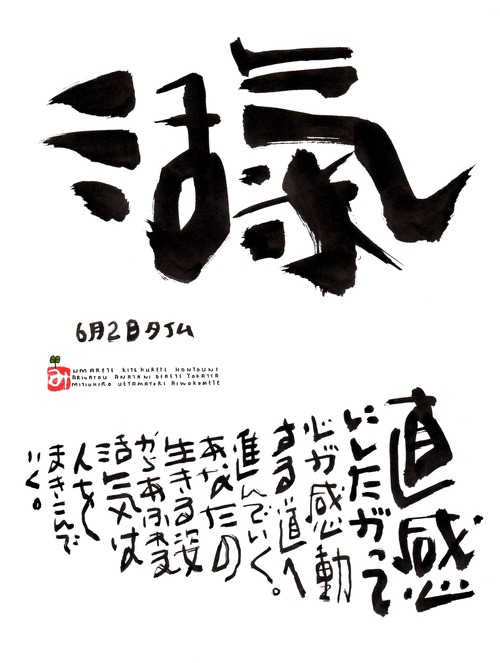 活氣
6月2日タイム
み
UMARETE KITEKURETE HONTOUNI
ARIGATOU ANATANI DEAETE YOKATTA
MITIHIRO UETAMAYORI AIWOKOMETE
直感
にしたがって
心が感動
する道へ
進んでいく。
あなたの
生きる姿
からあふれる
活気は
人を
まきこんで
いく。